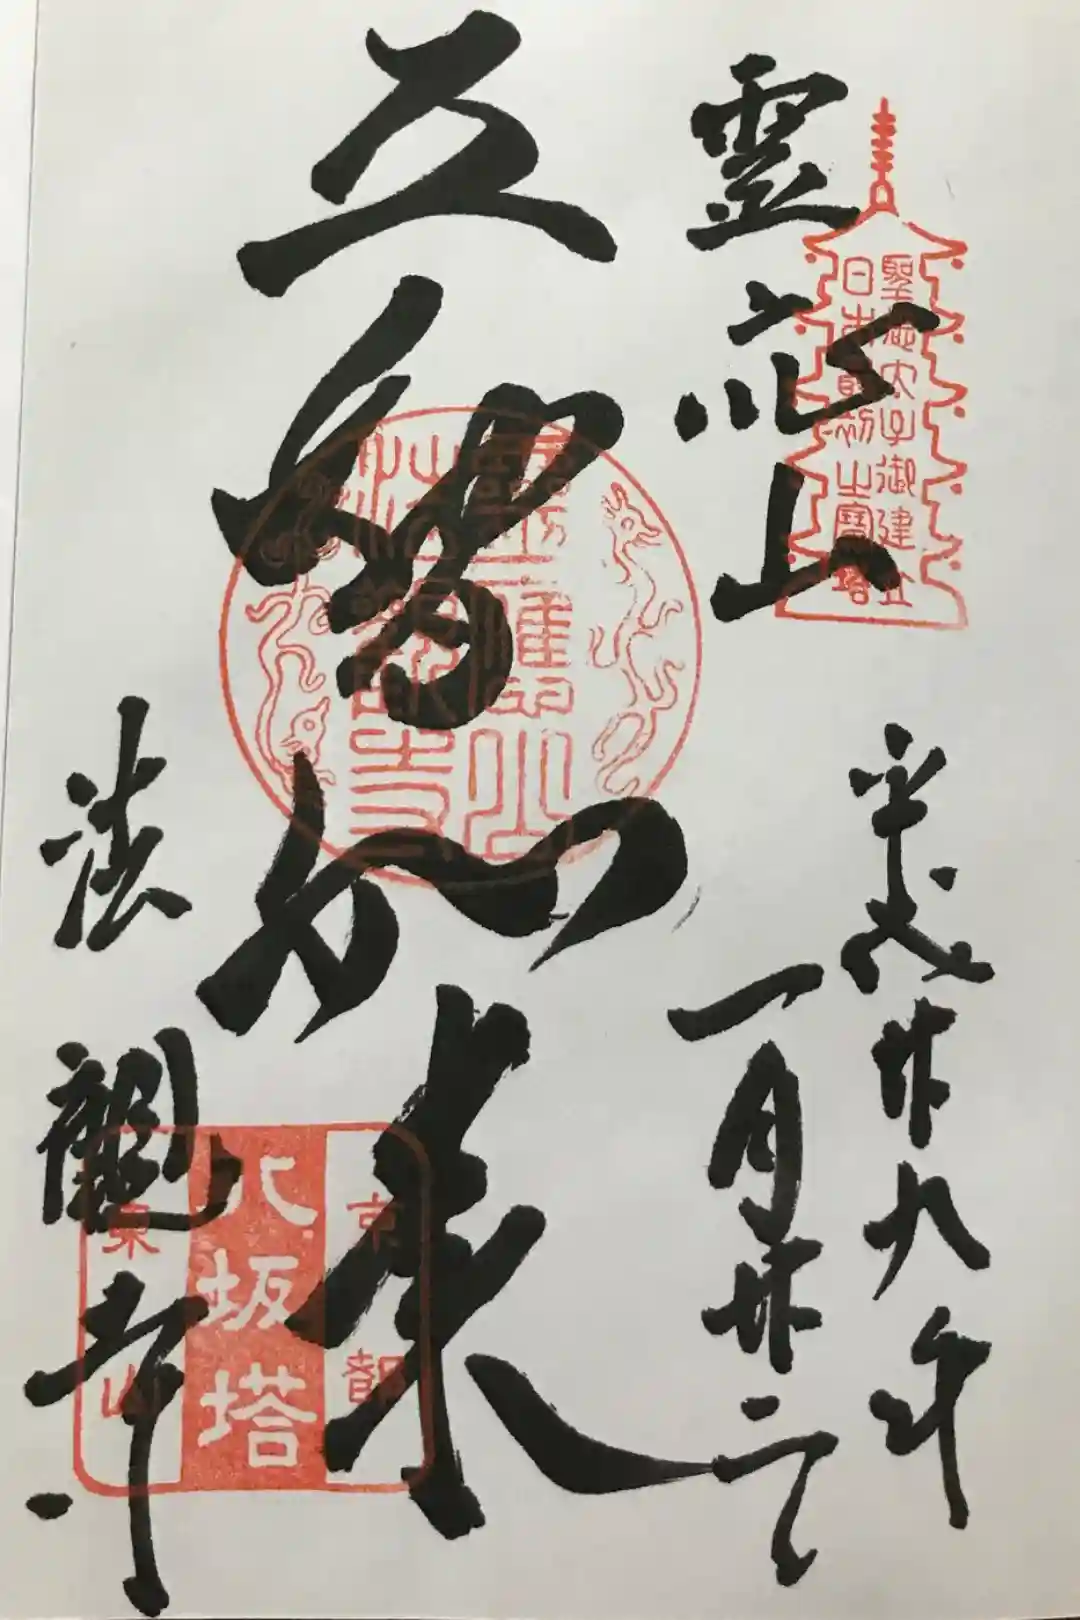 聖徳太子御建立
日本最初之寶塔
霊応山
平成廿九年
一月廿二日
五智如来
靈應山
法觀寺
京都
八坂塔
東山
法観寺